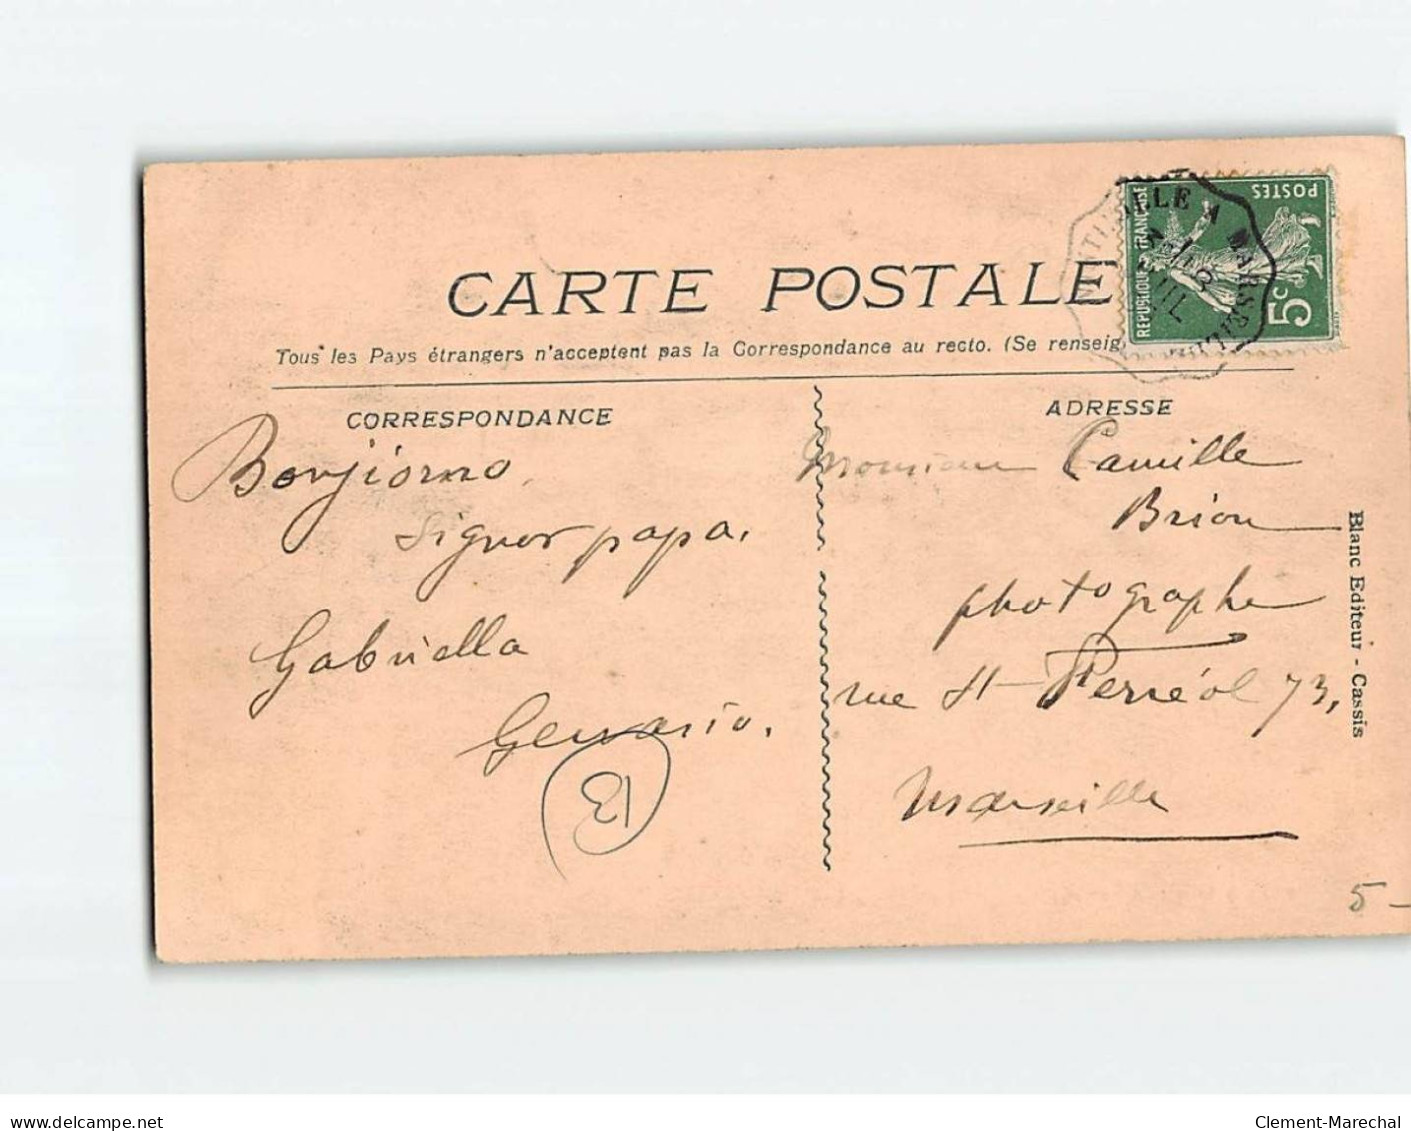 CARTE POSTALE
Tous les Pays étrangers n'acceptent pas la Correspondance au recto. (Se renseig
CORRESPONDANCE
Bonjiorno,
Signor papa.
Gabriella
Gervasio.
13
ADRESSE
Monsieur Camille
Brion
photographe
rue St Ferréol 73,
Marseille
Blanc Editeur - Cassis
POSTES
REPUBLIQUE FRANÇAISE
5c
5-
www.delcampe.net
Clement-Marechal